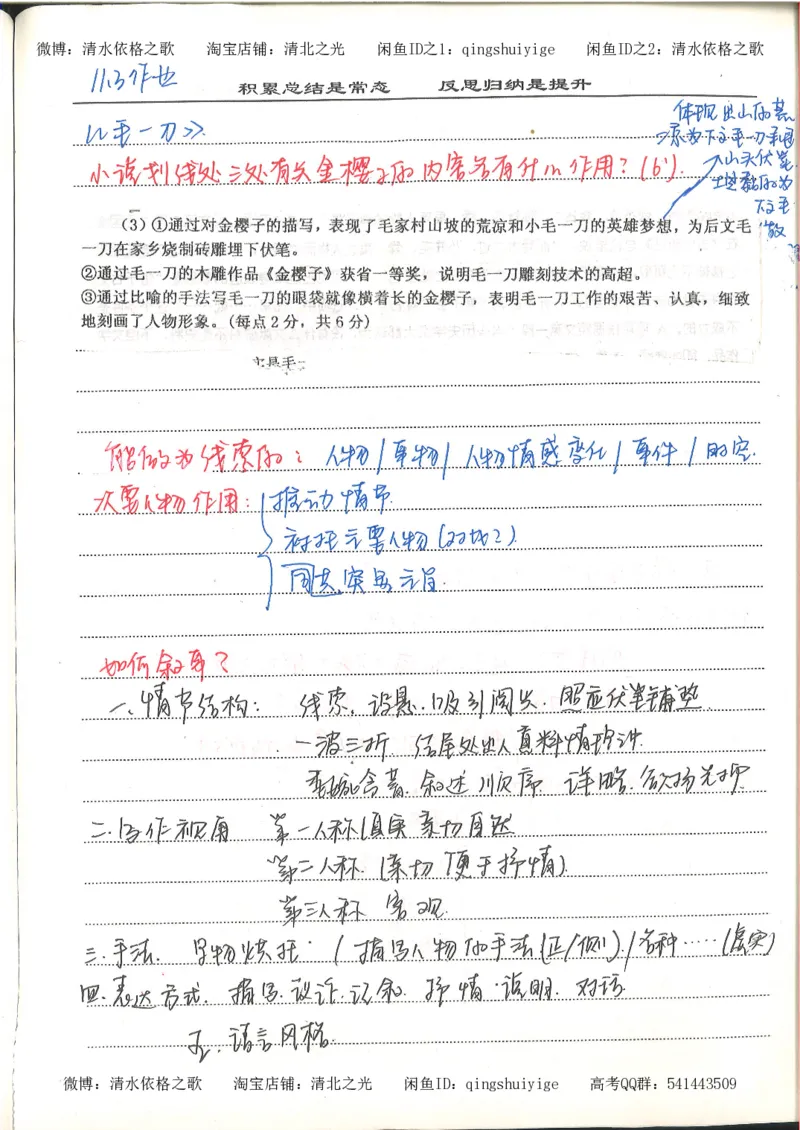 微博：清水依格之歌 淘宝店铺：清北之光 闲鱼ID之1：qingshuiyige 闲鱼ID之2：清水依格之歌
11.3作业
积累总结是常态 反思归纳是提升
体现出山的荒
《毛一刀》
小说划线处三处有关金樱子的内容各有什么作用？(6').
(3)①通过对金樱子的描写，表现了毛家村山坡的荒凉和小毛一刀的英雄梦想，为后文毛
一刀在家乡烧制砖雕埋下伏笔。
②通过毛一刀的木雕作品《金樱子》获省一等奖，说明毛一刀雕刻技术的高超。
③通过比喻的手法写毛一刀的眼袋就像横着长的金樱子，表明毛一刀工作的艰苦、认真，细致
地刻画了人物形象。(每点2分，共6分)
能做为线索的：人物/事物/人物情感变化/事件/时空.
次要人物作用：推动情节
衬托主要人物(对比?)
同其突出主旨.
如何叙事？
一.情节结构：线索.设悬.吸引阅读.照应伏笔铺垫
一波三折 结尾处出人意料情理中.
委婉含蓄.叙述顺序 详略.欲扬先抑
二.写作视角 第一人称(真实亲切自然
第二人称.(亲切 便于抒情).
第三人称 客观.
三.手法. 景物烘托 / 描写人物的手法(正/侧)./各种……(虚实)
四.表达方式.描写.议论.记叙.抒情.说明.对话
五.语言风格.
微博：清水依格之歌 淘宝店铺：清北之光 闲鱼ID：qingshuiyige 高考QQ群：541443509